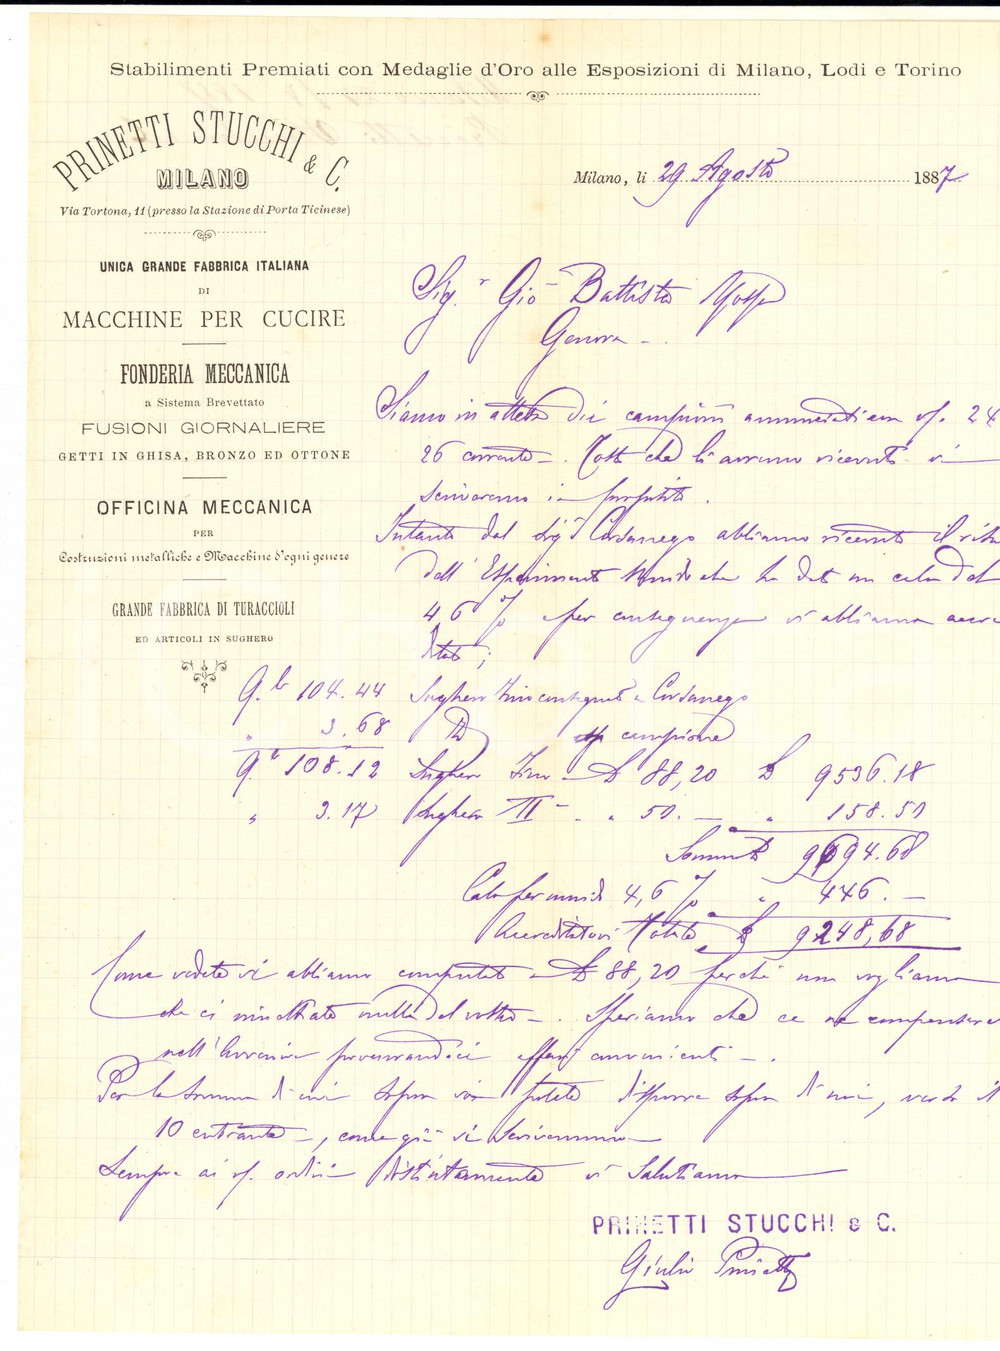 Stabilimenti Premiati con Medaglie d'Oro alle Esposizioni di Milano, Lodi e Torino
PRINETTI STUCCHI & C.
MILANO
Via Tortona, 11 (presso la Stazione di Porta Ticinese)
UNICA GRANDE FABBRICA ITALIANA
DI
MACCHINE PER CUCIRE
FONDERIA MECCANICA
a Sistema Brevettato
FUSIONI GIORNALIERE
GETTI IN GHISA, BRONZO ED OTTONE
OFFICINA MECCANICA
PER
Costruzioni metalliche e Macchine d'ogni genere
GRANDE FABBRICA DI TURACCIOLI
ED ARTICOLI IN SUGHERO
Milano, li 29 Agosto 1887
Sig.r Gio Battista
Genova
Siamo in attesa dei campioni annunciati 24
26 corrente. Tosto che li avremo ricevuti vi
scriveremo in proposito.
Intanto dal Sigr Cordanego abbiamo ricevuto il
dell' Esperimento che ha dato un calo del
4 6 % per conseguenza vi abbiamo accre
ditato;
Q.li 104.44 Sughero fino consegnato a Cordanego
" 3.68 ID campione
Q.li 108.12 Sughero fino a £ 88,20 £ 9536.18
" 3.17 Sughero III " 50. — " 158.50
Sommato 9694.68
Calo per umido 4,6 % " 446. —
Accreditovi Totale £ 9248,68
Come vedete vi abbiamo computato a £ 88,20 perchè non vogliamo
che ci rimettiate nulla del vostro. Speriamo che ce ne compenserete
nell' avvenire procurandoci affari convenienti.
Per la somma di cui sopra potete disporre sopra di noi, verso il
10 entrante, come già vi scrivemmo
Sempre ai vs. ordini distintamente vi salutiamo
PRINETTI STUCCHI & C.
Giulio Prinetti